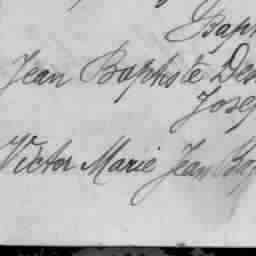 Bap
Jean Baptiste De
Josep
Victor Marie Jean Bap